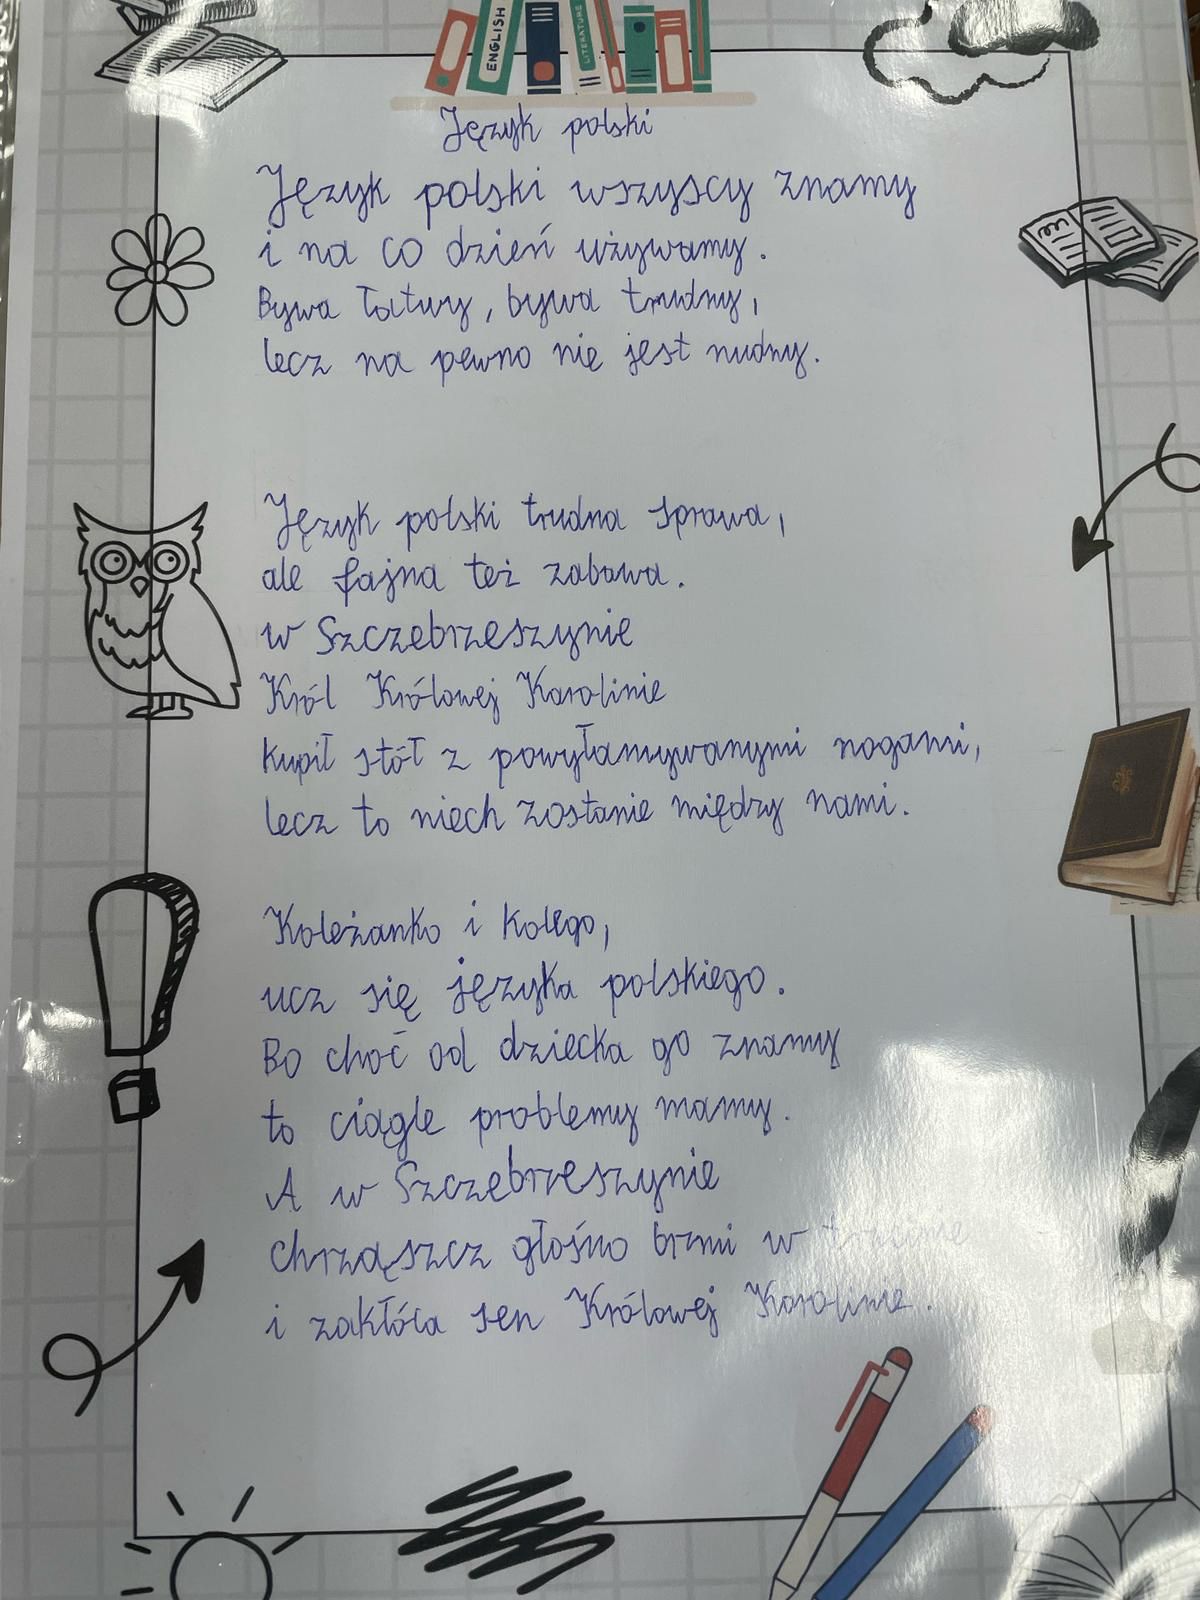 ENGLISH
LITERATURE
Język polski
Język polski wszyscy znamy
i na co dzień używamy.
Bywa łatwy, bywa trudny,
lecz na pewno nie jest nudny.
Język polski trudna sprawa,
ale fajna też zabawa.
w Szczebrzeszynie
Król Królowej Karolinie
kupił stół z powyłamywanymi nogami,
lecz to niech zostanie między nami.
Koleżanko i kolego,
ucz się języka polskiego.
Bo choć od dziecka go znamy
to ciągle problemy mamy.
A w Szczebrzeszynie
chrząszcz głośno brzmi w trzcinie
i zakłóca sen Królowej Karolinie.